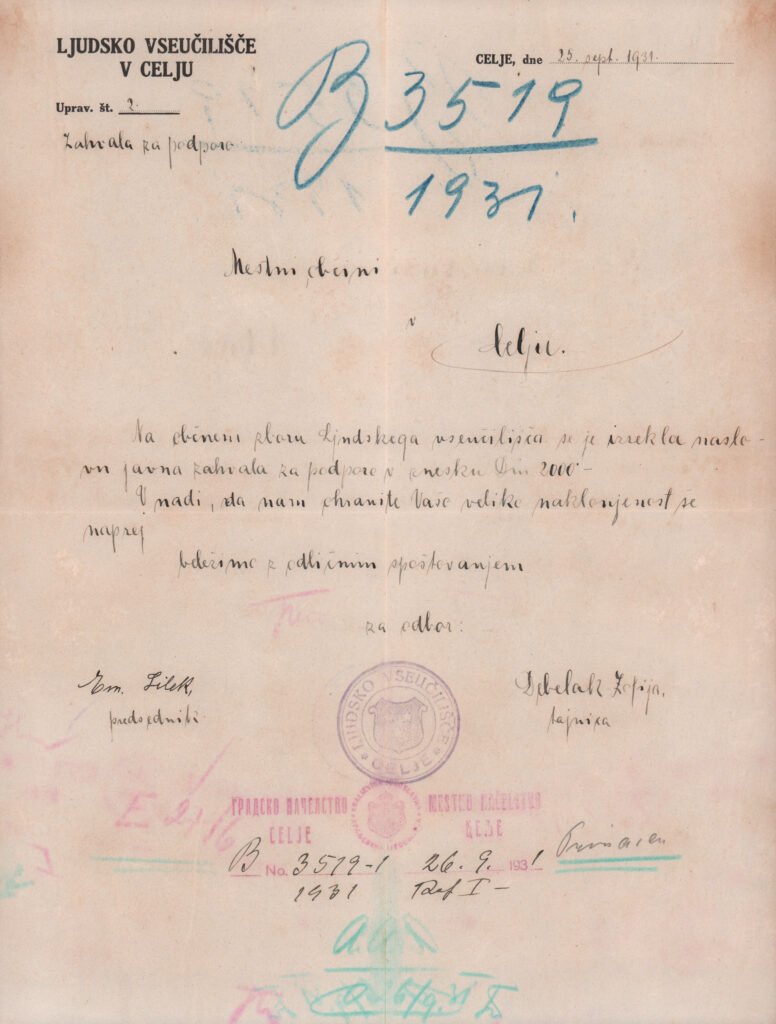 LJUDSKO VSEUČILIŠČE
V CELJU
CELJE, dne 25. sept. 1931.
Uprav. št. 2.
Zahvala za podporo
B 3519
1931.
Mestni občini
v
Celju.
Na občnem zboru Ljudskega vseučilišča se je izrekla naslo-
vu javna zahvala za podporo v znesku Din 2000-
V nadi, da nam ohranite Vašo veliko naklonjenost še
naprej
beležimo z odličnim spoštovanjem
za odbor:
Em. Lilek,
predsednik
Debelak Zofija,
tajnica
LJUDSKO VSEUČILIŠČE
CELJE
ГРАДСКО НАЧЕЛСТВО
CELJE
MESTNO NAČELSTVO
B No. 3519-1 26. 9. 1931
1931 Ref I-